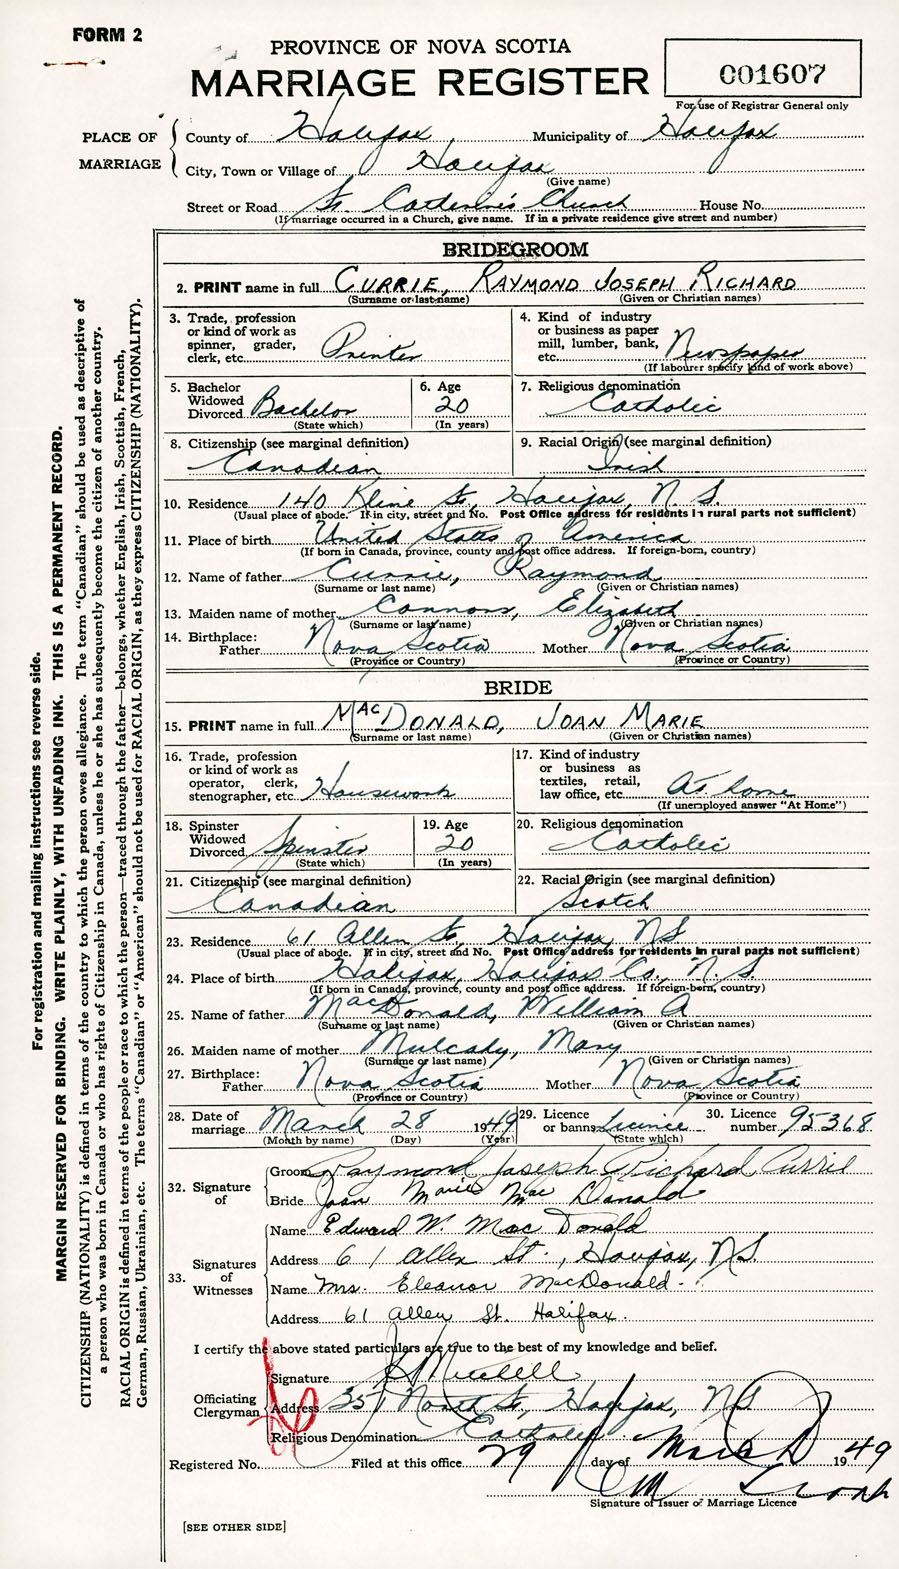 FORM 2
PROVINCE OF NOVA SCOTIA
MARRIAGE REGISTER
001607
For use of Registrar General only
PLACE OF MARRIAGE
County of Halifax Municipality of Halifax
City, Town or Village of Halifax
(Give name)
Street or Road St. Catherine's Church House No.
(If marriage occurred in a Church, give name. If in a private residence give street and number)
BRIDEGROOM
2. PRINT name in full CURRIE, RAYMOND JOSEPH RICHARD
(Surname or last name) (Given or Christian names)
3. Trade, profession or kind of work as spinner, grader, clerk, etc. Printer
4. Kind of industry or business as paper mill, lumber, bank, etc. Newspaper
(If labourer specify kind of work above)
5. Bachelor Widowed Divorced Bachelor
(State which)
6. Age 20
(In years)
7. Religious denomination Catholic
8. Citizenship (see marginal definition) Canadian
9. Racial Origin (see marginal definition) Irish
10. Residence 140 Kline St., Halifax, N.S.
(Usual place of abode. If in city, street and No. Post Office address for residents in rural parts not sufficient)
11. Place of birth United States of America
(If born in Canada, province, county and post office address. If foreign-born, country)
12. Name of father Currie, Raymond
(Surname or last name) (Given or Christian names)
13. Maiden name of mother Connors, Elizabeth
(Surname or last name) (Given or Christian names)
14. Birthplace: Father Nova Scotia Mother Nova Scotia
(Province or Country) (Province or Country)
BRIDE
15. PRINT name in full MacDONALD, JOAN MARIE
(Surname or last name) (Given or Christian names)
16. Trade, profession or kind of work as operator, clerk, stenographer, etc. Housework
17. Kind of industry or business as textiles, retail, law office, etc. At home
(If unemployed answer "At Home")
18. Spinster Widowed Divorced Spinster
(State which)
19. Age 20
(In years)
20. Religious denomination Catholic
21. Citizenship (see marginal definition) Canadian
22. Racial Origin (see marginal definition) Scotch
23. Residence 61 Allen St., Halifax, N.S.
(Usual place of abode. If in city, street and No. Post Office address for residents in rural parts not sufficient)
24. Place of birth Halifax, Halifax Co., N.S.
(If born in Canada, province, county and post office address. If foreign-born, country)
25. Name of father MacDonald, William A
(Surname or last name) (Given or Christian names)
26. Maiden name of mother Mulcahy, Mary
(Surname or last name) (Given or Christian names)
27. Birthplace: Father Nova Scotia Mother Nova Scotia
(Province or Country) (Province or Country)
28. Date of marriage March 28 1949
(Month by name) (Day) (Year)
29. Licence or banns Licence
(State which)
30. Licence number 95368
32. Signature of
Groom Raymond Joseph Richard Currie
Bride Joan Marie MacDonald
33. Signatures of Witnesses
Name Edward W. MacDonald
Address 61 Allen St., Halifax, N.S.
Name Mrs. Eleanor MacDonald.
Address 61 Allen St. Halifax.
I certify the above stated particulars are true to the best of my knowledge and belief.
Officiating Clergyman
Signature Mitchell
Address 351 North St., Halifax, N.S.
Religious Denomination Catholic
Registered No. Filed at this office 29 day of March 1949
Signature of Issuer of Marriage Licence
[SEE OTHER SIDE]
For registration and mailing instructions see reverse side.
MARGIN RESERVED FOR BINDING. WRITE PLAINLY, WITH UNFADING INK. THIS IS A PERMANENT RECORD.
CITIZENSHIP (NATIONALITY) is defined in terms of the country to which the person owes allegiance. The term "Canadian" should be used as descriptive of
a person who was born in Canada or who has rights of Citizenship in Canada, unless he or she has subsequently become the citizen of another country.
RACIAL ORIGIN is defined in terms of the people or race to which the person—traced through the father—belongs, whether English, Irish, Scottish, French,
German, Russian, Ukrainian, etc. The terms "Canadian" or "American" should not be used for RACIAL ORIGIN, as they express CITIZENSHIP (NATIONALITY).